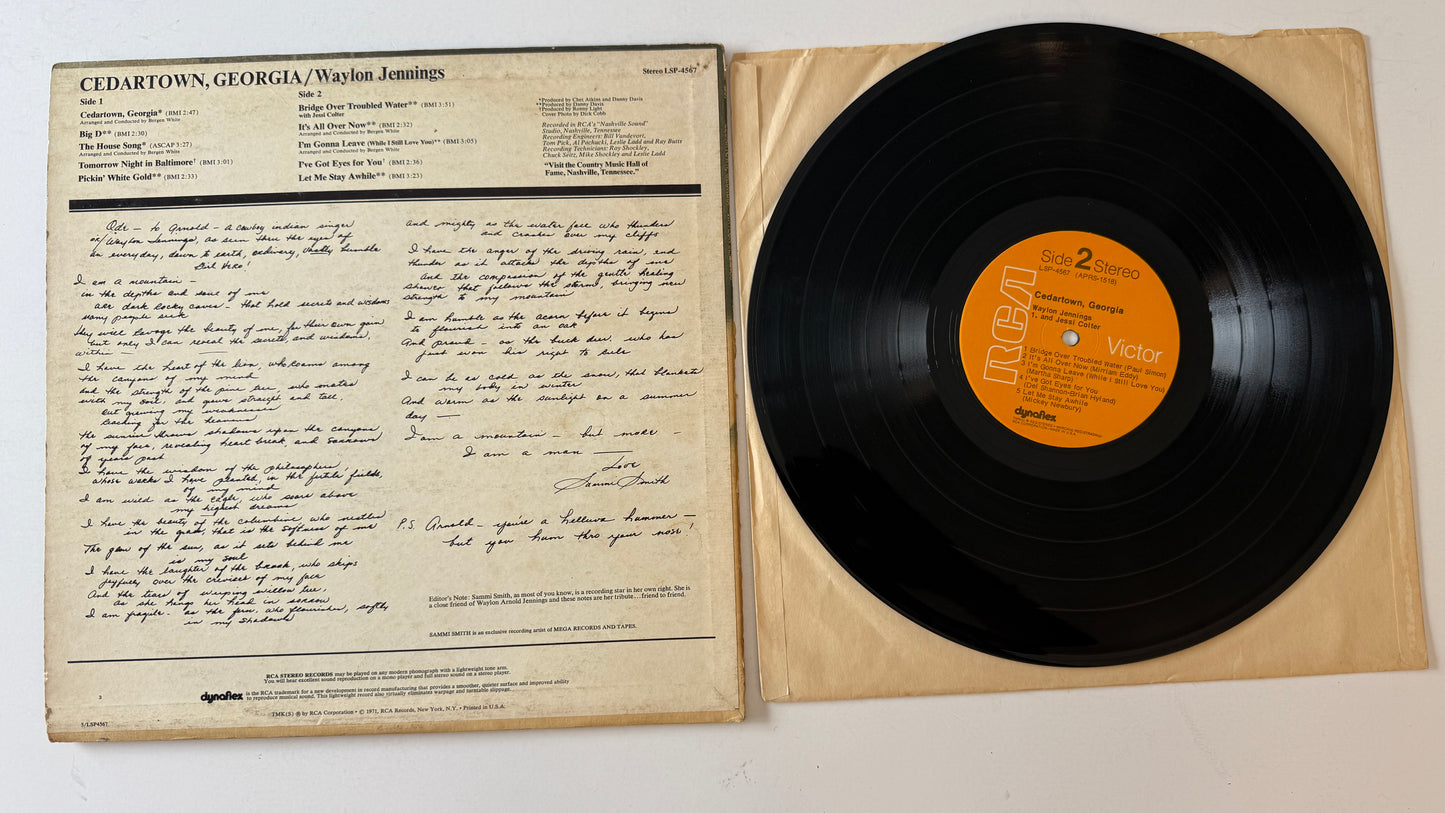 CEDARTOWN, GEORGIA/Waylon Jennings
Stereo LSP-4567
Side 1
Cedartown, Georgia* (BMI 2:47)
Arranged and Conducted by Bergen White
Big D** (BMI 2:30)
The House Song* (ASCAP 3:27)
Arranged and Conducted by Bergen White
Tomorrow Night in Baltimore† (BMI 3:01)
Pickin' White Gold** (BMI 2:33)
Side 2
Bridge Over Troubled Water** (BMI 3:51)
with Jessi Colter
It's All Over Now** (BMI 2:32)
Arranged and Conducted by Bergen White
I'm Gonna Leave (While I Still Love You)** (BMI 3:05)
Arranged and Conducted by Bergen White
I've Got Eyes for You† (BMI 2:36)
Let Me Stay Awhile** (BMI 3:23)
*Produced by Chet Atkins and Danny Davis
**Produced by Danny Davis
†Produced by Ronny Light
Cover Photo by Dick Cobb
Recorded in RCA's "Nashville Sound"
Studio, Nashville, Tennessee
Recording Engineers: Bill Vandevort,
Tom Pick, Al Pachucki, Leslie Ladd and Ray Butts
Recording Technicians: Roy Shockley,
Chuck Seitz, Mike Shockley and Leslie Ladd
"Visit the Country Music Hall of
Fame, Nashville, Tennessee."
Ode - to Arnold - a cowboy indian singer
or/Waylon Jennings, as seen thru the eyes of
an everyday, down to earth, ordinary, vastly humble
Girl Hero!
I am a mountain -
in the depths and soul of me
are dark rocky caves - that hold secrets and wisdoms
many people seek
They will ravage the beauty of me, for their own gain
but only I can reveal the secrets, and wisdoms,
within -
I have the heart of the lion, who roams among
the canyons of my mind
and the strength of the pine tree, who mates
with my soil, and grows straight and tall,
but growing my weaknesses
reaching for the heavens
The sunrise throws shadows upon the canyons
of my face, revealing heart break and sorrows
of years past
I have the wisdom of the philosophers,
whose works I have planted, in the fertile fields,
of my mind
I am wild as the eagle, who soars above
my highest dreams
I have the beauty of the columbine who nestles
in the grass, that is the softness of me
The glow of the sun, as it sets behind me
is my soul
I have the laughter of the brook, who skips
joyfully over the crevices of my face
And the tears of weeping willow tree,
as she hangs her head in sorrow
I am fragile - as the fern, who flourishes, softly
in my shadows
and mighty as the water fall who thunders
and crashes over my cliffs
I have the anger of the driving rain, and
thunder as it attacks the depths of me
And the compassion of the gentle healing
shower that follows the storm, bringing new
strength to my mountain
I am humble as the acorn before it begins
to flourish into an oak
And proud - as the buck deer, who has
just won his right to rule
I can be as cold as the snow, that blankets
my body in winter
And warm as the sunlight on a summer
day -
I am a mountain - but more -
I am a man -
Love
Sammi Smith
P.S. Arnold - you're a helluva hummer -
but you hum thro your nose!
Editor's Note: Sammi Smith, as most of you know, is a recording star in her own right. She is
a close friend of Waylon Arnold Jennings and these notes are her tribute...friend to friend.
SAMMI SMITH is an exclusive recording artist of MEGA RECORDS AND TAPES.
RCA STEREO RECORDS may be played on any modern phonograph with a lightweight tone arm.
You will hear excellent sound reproduction on a mono player and full stereo sound on a stereo player.
dynaflex is the RCA trademark for a new development in record manufacturing that provides a smoother, quieter surface and improved ability
to reproduce musical sound. This lightweight record also virtually eliminates warpage and turntable slippage.
3
TMK(S) ® by RCA Corporation • © 1971, RCA Records, New York, N.Y. • Printed in U.S.A.
3/LSP4567
Side 2 Stereo
LSP-4567 (APRS-1518)
Cedartown, Georgia
Waylon Jennings
1. and Jessi Colter
RCA
Victor
1 Bridge Over Troubled Water (Paul Simon)
2 It's All Over Now (Mirriam Eddy)
3 I'm Gonna Leave (While I Still Love You)
(Martha Sharp)
4 I've Got Eyes for You
(Del Shannon-Brian Hyland)
5 Let Me Stay Awhile
(Mickey Newbury)
dynaflex